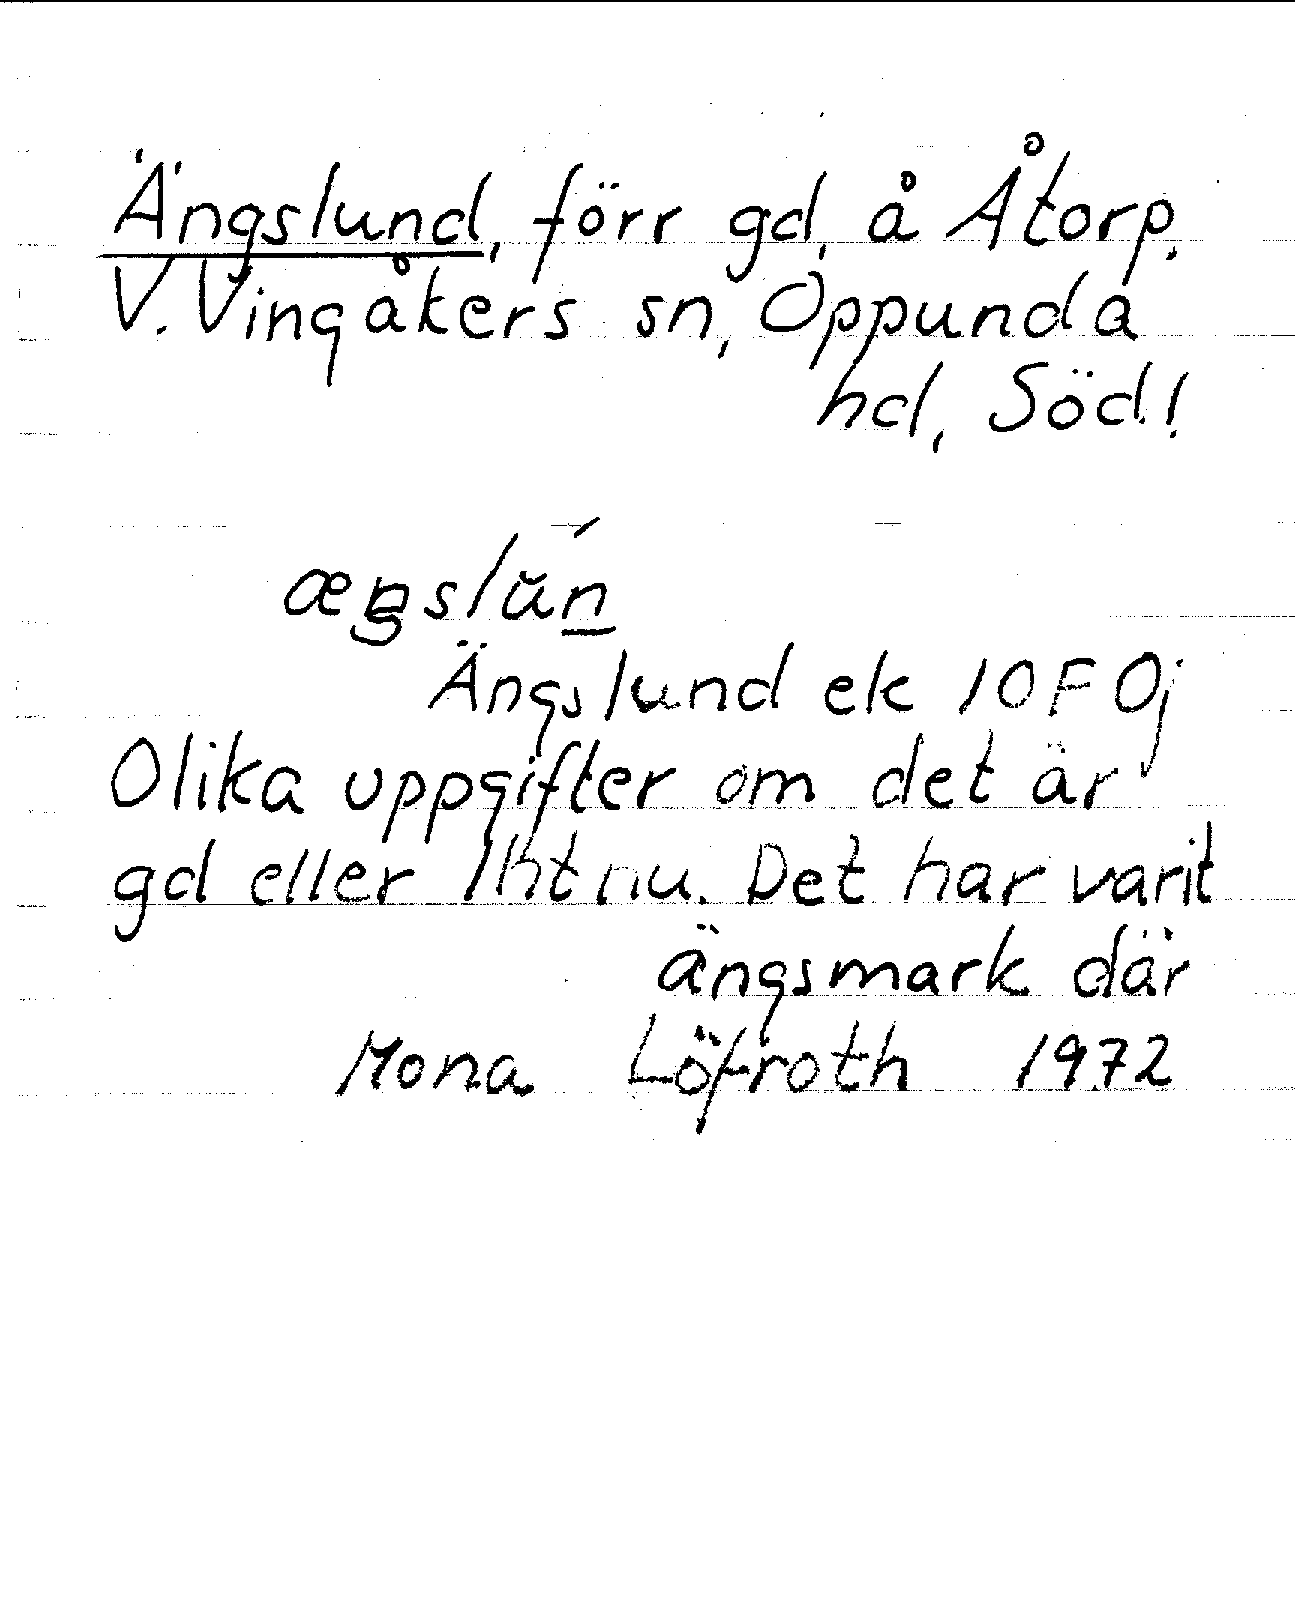 Ängslund, förr gd, å Åtorp.
V. Vingåkers sn, Oppunda
hd, Söd!
Ängslund ek 10F 0j
Olika uppgifter om det är
gd eller lht nu. Det har varit
ängsmark där
Mona Löfroth 1972